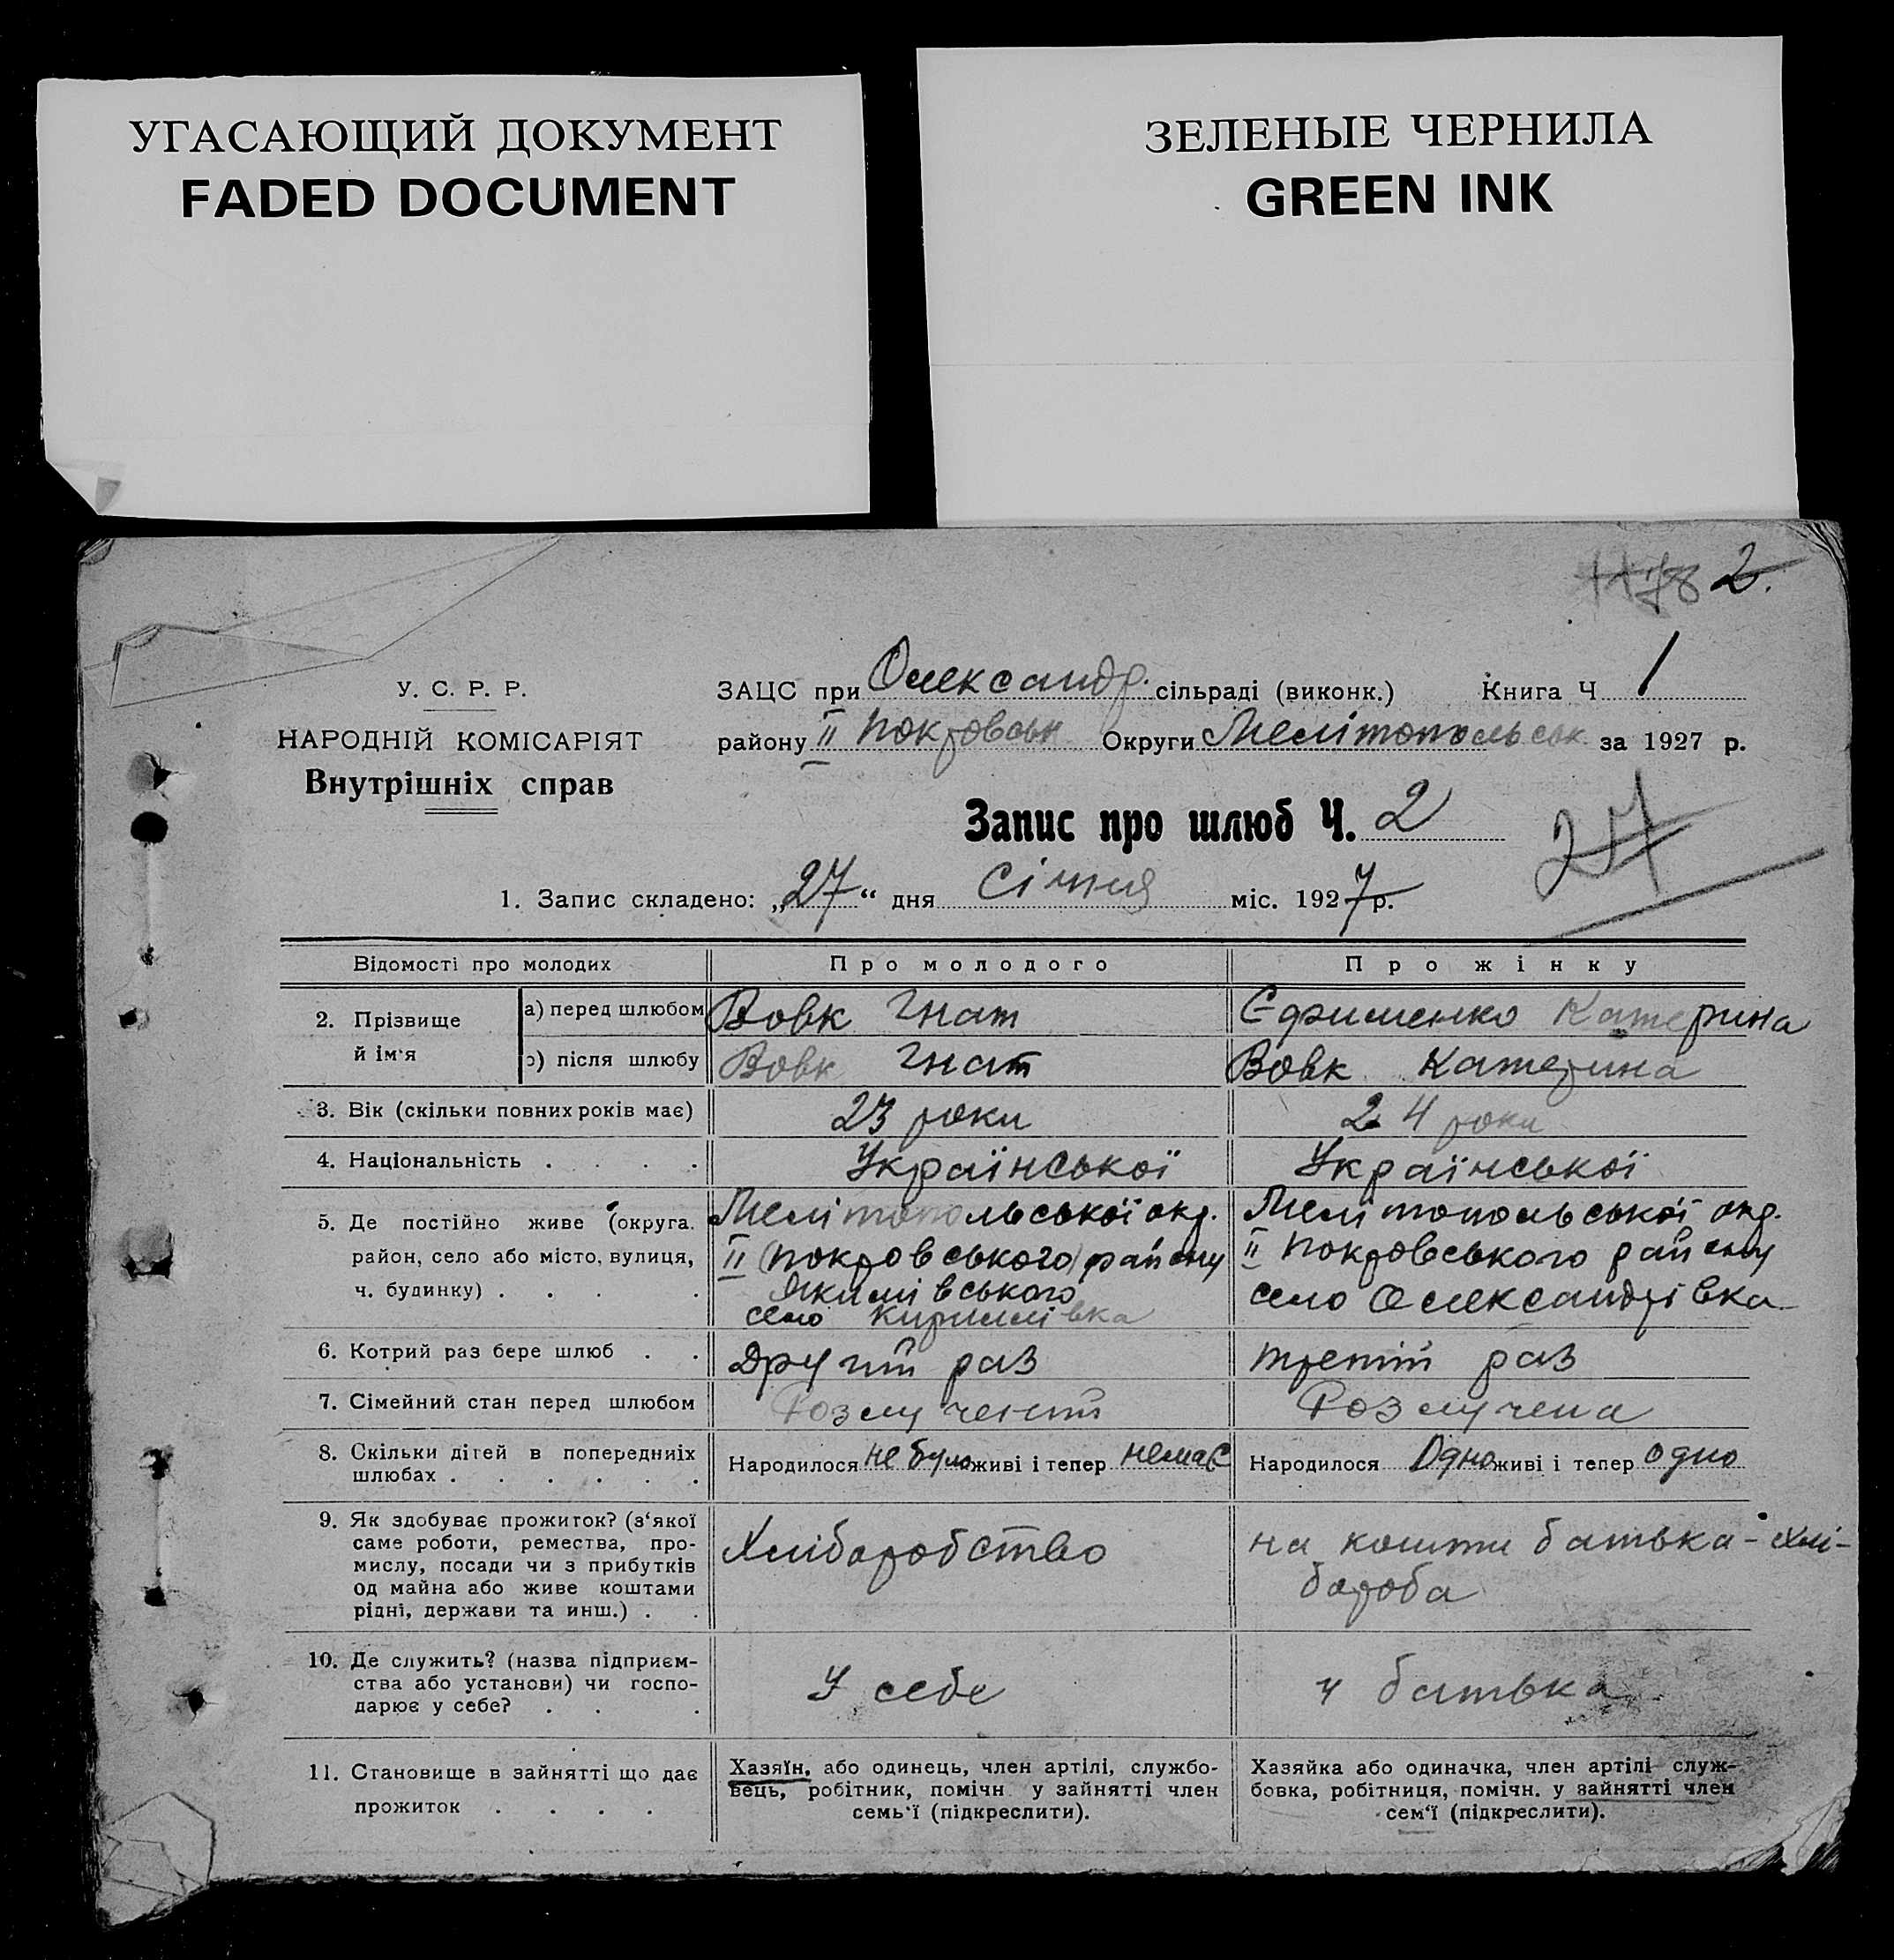 УГАСАЮЩИЙ ДОКУМЕНТ
FADED DOCUMENT
ЗЕЛЕНЫЕ ЧЕРНИЛА
GREEN INK
2.
У. С. Р. Р.
НАРОДНІЙ КОМІСАРІЯТ
Внутрішніх справ
ЗАЦС при Олександр. сільраді (виконк.) Книга Ч 1
району II Покровськ Округи Мелітопольськ. за 1927 р.
Запис про шлюб Ч. 2
27
1. Запис складено: „27“ дня Січня міс. 1927 р.
Відомості про молодих
Про молодого
Про жінку
2. Прізвище й ім‘я
а) перед шлюбом
Вовк Гнат
Єфименко Катерина
в) після шлюбу
Вовк Гнат
Вовк Катерина
3. Вік (скільки повних років має)
23 роки
24 роки
4. Національність . . . .
Української
Української
5. Де постійно живе (округа,
район, село або місто, вулиця,
ч. будинку) . . . .
Мелітопольської окр.
II (Покровського) району
Якимівського
село Кирилівка
Мелітопольської окр.
II Покровського району
село Олександрівка
6. Котрий раз бере шлюб . .
Другий раз
третій раз
7. Сімейний стан перед шлюбом
Розлучений
Розлучена
8. Скільки дітей в попередніх
шлюбах . . . . . .
Народилося не було живі і тепер немає
Народилося Одно живі і тепер одно
9. Як здобуває прожиток? (з‘якої
саме роботи, ремества, про-
мислу, посади чи з прибутків
од майна або живе коштами
рідні, держави та инш.) . .
Хліборобство
на кошти батька - хлі-
бороба
10. Де служить? (назва підприєм-
ства або установи) чи госпо-
дарює у себе? . . .
У себе
у батька
11. Становище в зайнятті що дає
прожиток . . . .
Хазяїн, або одинець, член артілі, службо-
вець, робітник, помічн у зайнятті член
семь‘ї (підкреслити).
Хазяйка або одиначка, член артілі служ-
бовка, робітниця, помічн. у зайнятті член
сем‘ї (підкреслити).